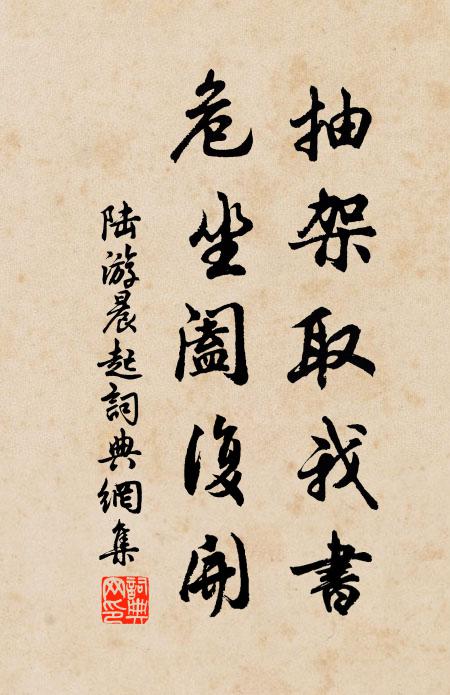 抽架取我書
危坐闔復開
陆游晨起詞典網集
詞典网印